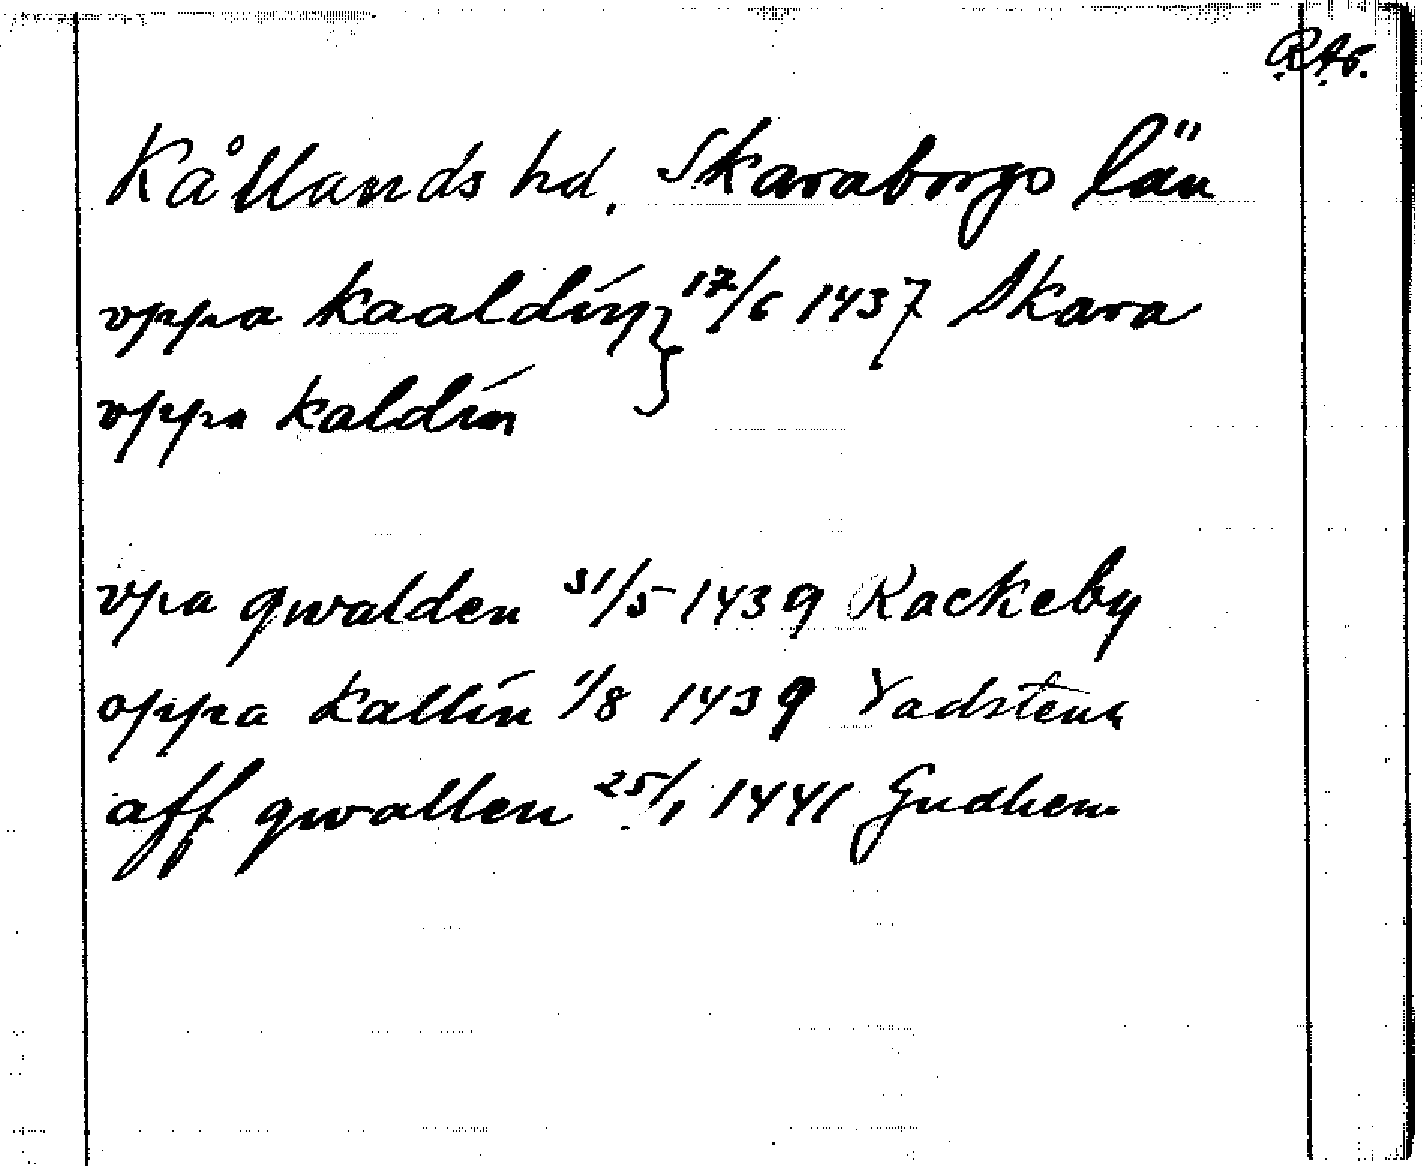 R.A.6.
Kållands hd. Skaraborgs län
vppa kaaldín } 17/6 1437 Skara
vppa kaldín
vpa qwalden 31/5 1439 Rackeby
oppa kallín 1/8 1439 Vadstena
aff qwallen 25/1 1441 Gudhem